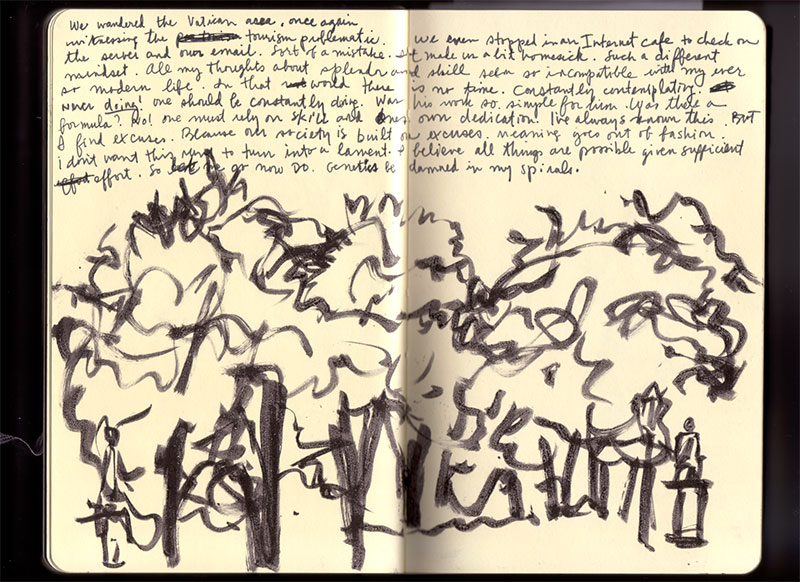 We wandered the Vatican area, once again
witnessing the tourism problematic. We even stopped in an Internet cafe to check on
the server and our email. Sort of a mistake. It made me a bit homesick. Such a different
mindset. All my thoughts about splendor and skill seem so incompatible with my ever
so modern life. In that world there is no time. Constantly contemplating.
never doing! one should be constantly doing. Was his work so simple for him. Was there a
formula? No! one must rely on skill and one's own dedication. I've always known this. BUT
I find excuses. Because our society is built on excuses. meaning goes out of fashion.
i don't want this to turn into a lament. I believe all things are possible given sufficient
effort. So let me go now DO. Genetics be damned in my spirals.